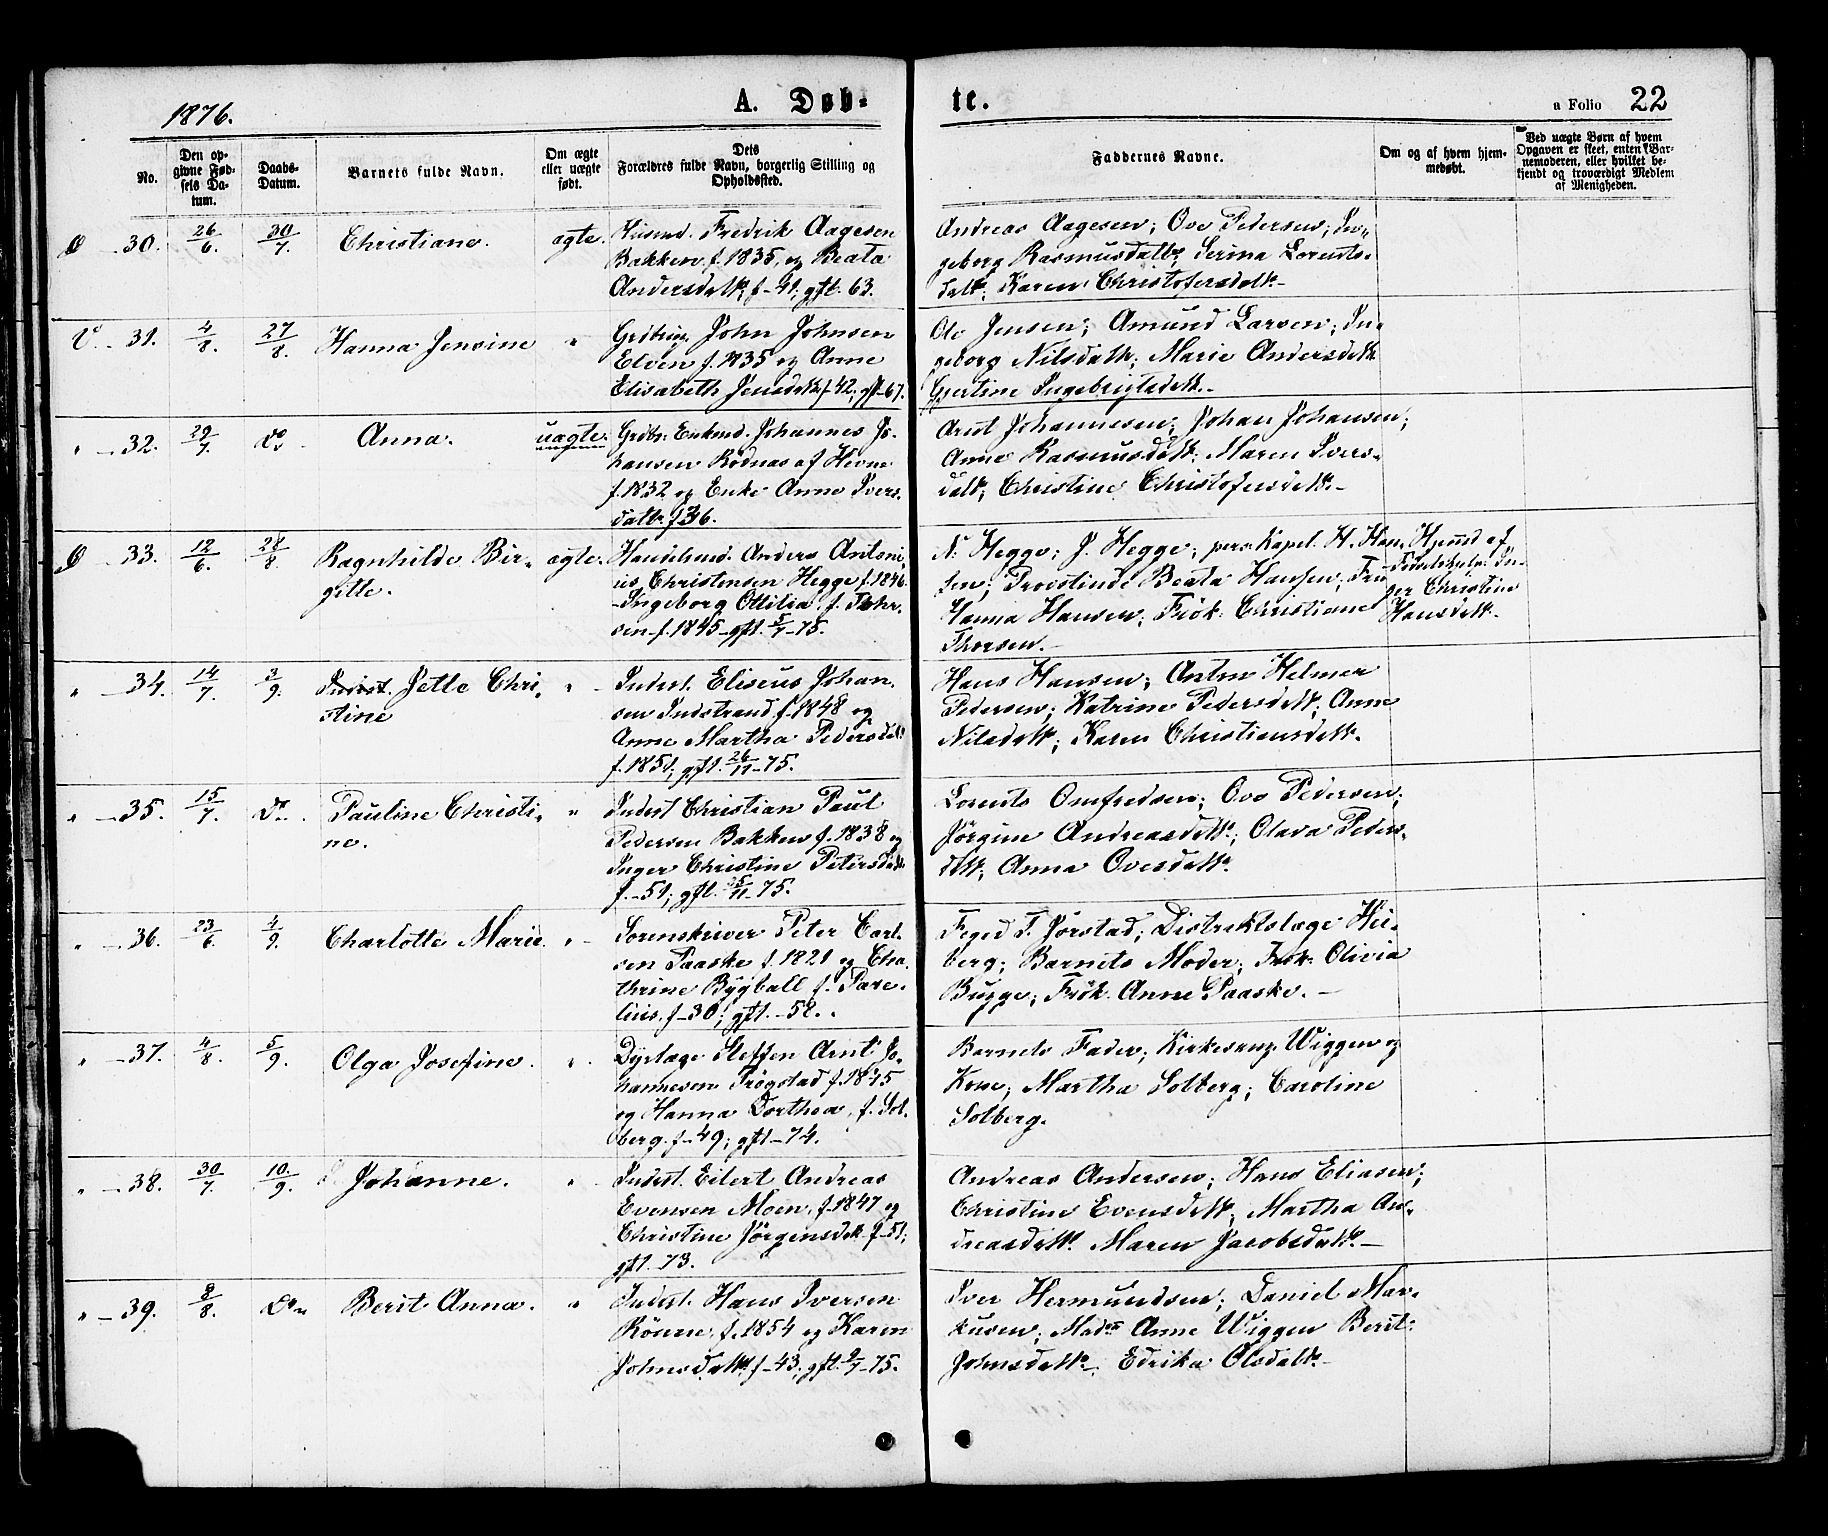 1876.
A. Døb-
te.
a Folio 22
No.
Den op-
givne Fød-
sels Da-
tum.
Daabs-
Datum.
Barnets fulde Navn.
Om ægte
eller uægte
født.
Dets
Forældres fulde Navn, borgerlig Stilling og
Opholdssted.
Faddernes Navne.
Om og af hvem hjem-
medøbt.
Ved uægte Børn af hvem
Opgaven er skeet, enten Bar-
nemoderen, eller hvilket be-
kjendt og troværdigt Medlem
af Menigheden.
Ø - 30. 26/6. 30/7. Christiane. ægte.
Husmd. Fredrik Aagesen
Bakken, f. 1835, og Beata
Andersdatt. f - 41; gft. 63.
Andreas Aagesen; Ove Pedersen; In-
geborg Rasmusdatt; Serina Lorents-
datt; Karen Christofersdatt. -
V. - 31. 4/8. 27/8. Hanna Jensine "
Grdbrug. John Johnsen
Elven f. 1835 og Anne
Elisabeth Jensdatt f-42, gft-67.
Ole Jensen; Amund Larsen; In-
geborg Nilsdatt; Marie Andersdatt
Gjertine Ingebrigtsdatt. -
" - 32. 29/7. Do. Anna. uægte.
Grdbr. Enkmd. Johannes Jo-
hansen Rødnæs af Hevne
f. 1832 og Enke Anne Ivers-
datt. f 36.
Arnt Johannesen; Johan Johansen;
Anne Rasmusdatt; Maren Ivers-
datt; Christine Christofersdatt. -
Ø - 33. 12/6. 28/8. Ragnhilde Bir-
gitte. ægte.
Handelsmd. Anders Antoni-
us Christensen Hegge f. 1846
- Ingeborg Ottilia, f. Thor-
sen - f. 1845 - gft. 5/7 - 75.
N. Hegge; J. Hegge; pers. Kapel. H. Han-
sen; Provstinde Beata Hansen; Fru
Hanna Hansen; Frøk. Christiane
Thorsen. -
Hjemd af
In-
ger Christine
Hansdatt.
" - 34. 14/7. 3/9. Jette Chri-
stine " -
Inderst. Eliseus Johan-
sen Indstrand f. 1848 og
Anne Martha Pedersdatt
f. 1851; gft. 26/11 - 75.
Hans Hansen; Anton Helmer
Pedersen; Katrine Pedersdatt; Anne
Nilsdatt; Karen Christiansdatt.
" - 35. 15/7. Do. Pauline Christi-
ne. "
Inderst Christian Paul
Pedersen Bakken f. 1838 og
Inger Christine Petersdatt
f. - 51; gft. 5/11 - 75.
Lorents Omfredsen; Ove Pedersen;
Jørgine Andreasdatt; Olava Peders-
datt; Anna Ovesdatt.
" - 36. 23/6. 4/9. Charlotte Marie. " -
Sorenskriver Peter Carl-
sen Paaske f. 1821 og Cha-
thrine Bygball f. Pare-
lius, f - 30; gft. - 52.
Foged T. Jørstad; Distriktslæge Hu-
berg; Barnets Moder; Frøk. Olivia
Bugge; Frøk. Anne Paaske. -
" - 37. 4/8. 5/9. Olga Josefine. "
Dyrlæge Steffen Arnt Jo-
hannesen Trøgstad f. 1845
og Hanna Dorthea, f. Sol-
berg. f - 49; gft - 74.
Barnets Fader; Kirkesang. Wiggen og
Kone; Martha Solberg; Caroline
Solberg.
" - 38. 30/7. 10/9. Johanne. " -
Inderst. Eilert Andreas
Evensen Moen, f. 1847 og
Christine Jørgensdatt f - 51;
gft - 73.
Andreas Andersen; Hans Eliasen;
Christine Evensdatt; Martha An-
dreasdatt. Maren Jacobsdatt. -
" - 39. 8/8. Do " Berit Anna. "
Inderst. Hans Iversen
Rønne, f. 1854 og Karen
Johnsdatt f - 43; gft. 9/7 - 75.
Iver Hermundsen; Daniel Mar-
kusen; Mad. Anne Wiggen Berit
Johnsdatt. Edrika Olsdatt. -